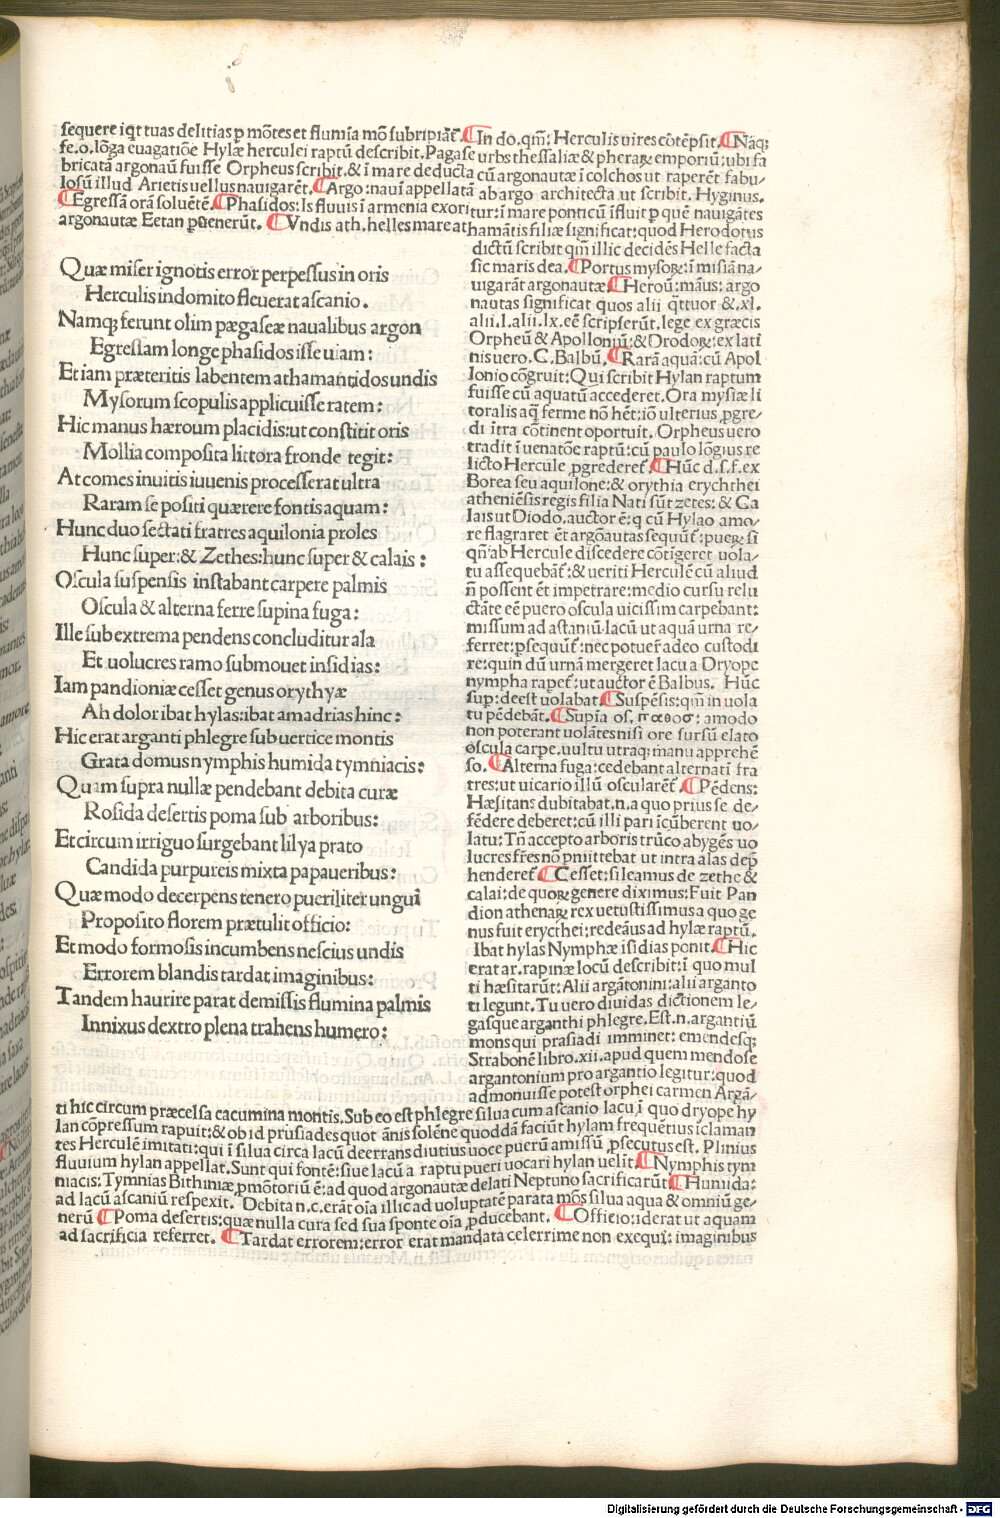 sequere iqt tuas delitias p mōtes et flumīa mō subripiāt̄. ¶ In do. qm̄: Herculis uires cōtēpsit. ¶ Nāq;
fe. o. lōga euagatiōe Hylæ herculei raptū describit. Pagase urbs thessaliæ & pheraꝝ emporiū: ubi fa
bricatā argonaū fuisse Orpheus scribit. & ī mare deducta cū argonautæ ī colchos ut raperēt fabu⸗
losū illud Arietis uellus nauigarēt. ¶ Argo: nauī appellatā ab argo architecta ut scribit. Hyginus.
¶ Egressā orā soluētē. ¶ Phasidos: Is fluuis ī armenia exoritur: ī mare ponticū īfluit p quē nauigātes
argonautæ Eetan puenerūt. ¶ Vndis ath. helles mare athamātis filiæ significat: quod Herodotus
Quæ miser ignotis error perpessus in oris
Herculis indomito fleuerat ascanio.
Namq; ferunt olim pægaseæ naualibus argon
Egressam longe phasidos isse uiam:
Et iam præteritis labentem athamantidos undis
Mysorum scopulis applicuisse ratem:
Hic manus hæroum placidis: ut constitit oris
Mollia composita littora fronde tegit:
At comes inuitis iuuenis processerat ultra
Raram se positi quærere fontis aquam:
Hunc duo sectati fratres aquilonia proles
Hunc super: & Zethes: hunc super & calais:
Oscula suspensis instabant carpere palmis
Oscula & alterna ferre supina fuga:
Ille sub extrema pendens concluditur ala
Et uolucres ramo submouet insidias:
Iam pandioniæ cesset genus orythyæ
Ah dolor ibat hylas: ibat amadrias hinc:
Hic erat arganti phlegre sub uertice montis
Grata domus nymphis humida tymniacis:
Quam supra nullæ pendebant debita curæ
Rosida desertis poma sub arboribus:
Et circum irriguo surgebant lilya prato
Candida purpureis mixta papaueribus:
Quæ modo decerpens tenero pueriliter ungui
Proposito florem prætulit officio:
Et modo formosis incumbens nescius undis
Errorem blandis tardat imaginibus:
Tandem haurire parat demissis flumina palmis
Innixus dextro plena trahens humero:
dictū scribit qm̄ illic decidēs Helle facta
sic maris dea. ¶ Portus mysoꝝ: ī misiā na⸗
uigarāt argonautæ. ¶ Heroū: māus: argo
nautas significat quos alii q̄ttuor &. xl.
alii. l. alii. lx. eē scripserūt. lege ex græcis
Orpheū & Apolloniū: & Drodoꝝ: ex lati
nis uero. C. Balbū. ¶ Rarā aquā: cū Apol
lonio cōgruit: Qui scribit Hylan raptum
fuisse cū aquatū accederet. Ora mysiæ li
toralis aq̄ ferme nō hēt: iō ulterius ꝓgre⸗
di ītra cōtinent oportuit. Orpheus uero
tradit ī uenatōe raptū: cū paulo lōgius re
licto Hercule ꝓgrederet̄. ¶ Hūc d. s. f. ex
Borea seu aquilone: & orythia erychthei
atheniēsis regis filia Nati sūt zetes: & Ca
lais ut Diodo. auctor ē: q cū Hylao amo⸗
re flagraret ēt argōautas sequūt̄: pueꝝ si
qn̄ ab Hercule discedere cōtigeret uola⸗
tu assequebāt̄: & ueriti Herculē cū aliud
n̄ possent ēt impetrare: medio cursu relu
ctāte eē puero oscula uicissim carpebant:
missum ad astaniū lacū ut aquā urna re⸗
ferret: psequūt̄: nec potuer̄ adeo custodi
re: quin dū urnā mergeret lacu a Dryope
nympha rapet̄: ut auctor ē Balbus. Hūc
sup: deest uolabat. ¶ Suspēsis: qm̄ in uola
tu pēdebāt. ¶ Supīa os. παθοσ: amodo
non poterant uolātes nisi ore sursū elato
oscula carpe. uultu utraq; manu apprehē
so. ¶ Alterna fuga: cedebant alternatī fra
tres: ut uicario illū oscularēt̄. ¶ Pēdens:
Hæsitans dubitabat. n. a quo prius se de⸗
fēdere deberet: cū illi pari īcūberent uo⸗
latu: Tn̄ accepto arboris trūco abygēs uo
lucres fr̄es nō pmittebat ut intra alas dep̄
henderet̄. ¶ Cesset: sileamus de zethe &
calai: de quoꝝ genere diximus: Fuit Pan
dion athenaꝝ rex uetustissimus a quo ge
nus fuit erycthei: redeāus ad hylæ raptū.
Ibat hylas Nymphæ īsidias ponit. ¶ Hic
erat ar. rapinæ locū describit: ī quo mul
ti hæsitarūt: Alii argātonini: alii arganto
ti legunt. Tu uero diuidas dictionem le⸗
gasque arganthi phlegre. Est. n. argantiū
mons qui prasiadi imminet: emendesq;
Strabonē libro. xii. apud quem mendose
argantonium pro argantio legitur: quod
admonuisse potest orphei carmen Argā⸗
ti hic circum præcelsa cacumina montis. Sub eo est phlegre silua cum ascanio lacu ī quo dryope hy
lan cōpressum rapuit: & ob id prusiades quot ānis solēne quoddā faciūt hylam frequētius īclaman
tes Herculē imitati: qui ī silua circa lacū deerrans diutius uoce puerū amissū ꝓsecutus est. Plinius
fluuium hylan appellat. Sunt qui fontē: siue lacū a raptu pueri uocari hylan uelīt. ¶ Nymphis tym
niacis: Tymnias Bithiniæ ꝓmōtoriū ē: ad quod argonautæ delati Neptuno sacrificarūt ¶ Humida:
ad lacū ascaniū respexit. Debita n. c. erāt oīa illic ad uoluptatē parata mōs silua aqua & omniū ge⸗
nerū ¶ Poma desertis: quæ nulla cura sed sua sponte oīa ꝓducebant. ¶ Officio: iderat ut aquam
ad sacrificia referret. ¶ Tardat errorem: error erat mandata celerrime non exequi: imaginibus
Digitalisierung gefördert durch die Deutsche Forschungsgemeinschaft - DFG